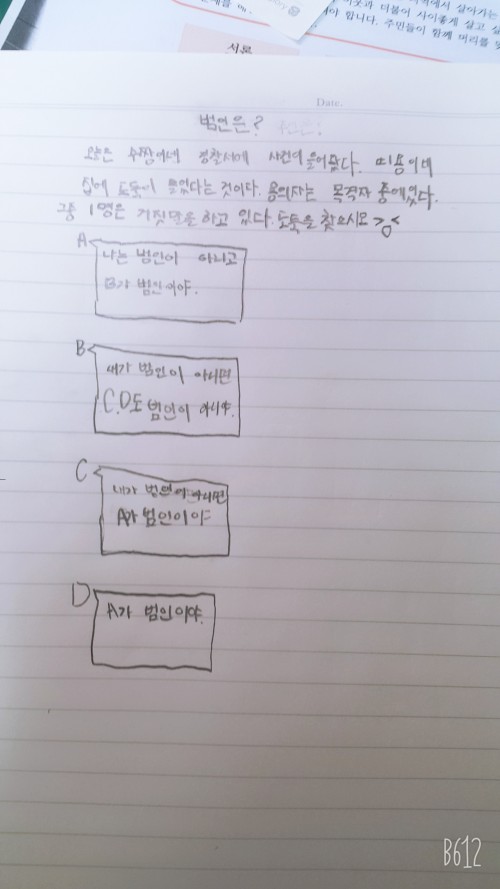 역에서 살아가는
이웃과 더불어 사이좋게 살고
야 합니다. 주민들이 함께 머리를 맞
서론
Date.
범인은?
오늘은 수짱이네 경찰서에 사건이 들어왔다. 띠용이네
집에 도둑이 들었다는 것이다. 용의자는 목격자 중에있다.
그중 1명은 거짓말을 하고 있다. 도둑을 찾으시오
A
나는 범인이 아니고
B가 범인이야.
B
내가 범인이 아니면
C.D도 범인이 아니야.
C
내가 범인이 아니면
A가 범인이야
D
A가 범인이야.
B612